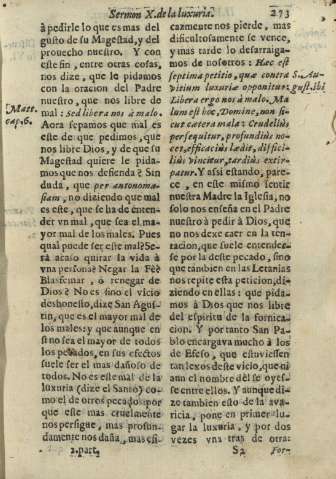 Sermon X. de la luxuria. 273
à pedirle lo que es mas del
gusto de su Magestad, y del
prouecho nuestro. Y con
este fin, entre otras cosas,
nos dize, que le pidamos
con la oracion del Padre
nuestro, que nos libre de
mal: Sed libera nos à malo.
Matt.
cap. 6.
Aora sepamos que mal es
este de que pedimos, que
nos libre Dios, y de que su
Magestad quiere le pida-
mos que nos defienda? Sin
duda, que per antonoma-
siam, no diziendo que mal
es este, que se ha de enten-
der vn mal, que sea el ma-
yor mal de los males. Pues
qual puede ser este mal? Se
rà acaso quitar la vida à
vna persona? Negar la Fè?
Blasfemar, ò renegar de
Dios? No es sino el vicio
deshonesto, dize San Agus-
tin, que es el mayor mal de
los males: y que aunque en
sì no sea el mayor de todos
los pecados, en sus efectos
suele ser el mas dañoso de
todos. No es este mal de la
luxuria (dize el Santo) co-
mo el de otros pecado, por
que este mas cruelmente
nos persigue, mas profun-
damente nos daña, mas efi-
2. part.
cazmente nos pierde, mas
dificultosamente se vence,
y mas tarde lo desarraiga-
mos de nosotros: Hæc est
septima petitio, quæ contra
vitium luxuriæ opponitur:
S. Au-
gust. ibi
Libera ergo nos à malo. Ma-
lum est hoc, Domine, non si-
cut cætera mala: Crudeliùs
persequitur, profundiùs no-
cet, efficaciùs lædit, difficí-
liùs vincitur, tardiùs extir-
patur. Y assi estando, pare-
ce, en este mismo sentir
nuestra Madre la Iglesia, no
solo nos enseña en el Padre
nuestro à pedir à Dios, que
no nos dexe caer en la ten-
tacion, que suele entender-
se por la deste pecado, sino
que tambien en las Letanias
nos repite esta peticion, di-
ziendo en ellas: que pida-
mos à Dios que nos libre
del espiritu de la fornica-
cion. Y por tanto San Pa-
blo encargava mucho à los
de Efeso, que estuviessen
tan lexos deste vicio, que ni
aun el nombre dèl se oyes-
se entre ellos. Y aunque di-
ze tambien esto de la ava-
ricia, pone en primer lu-
gar la luxuria, y por dos
vezes vna tras de otra:
S2 For-